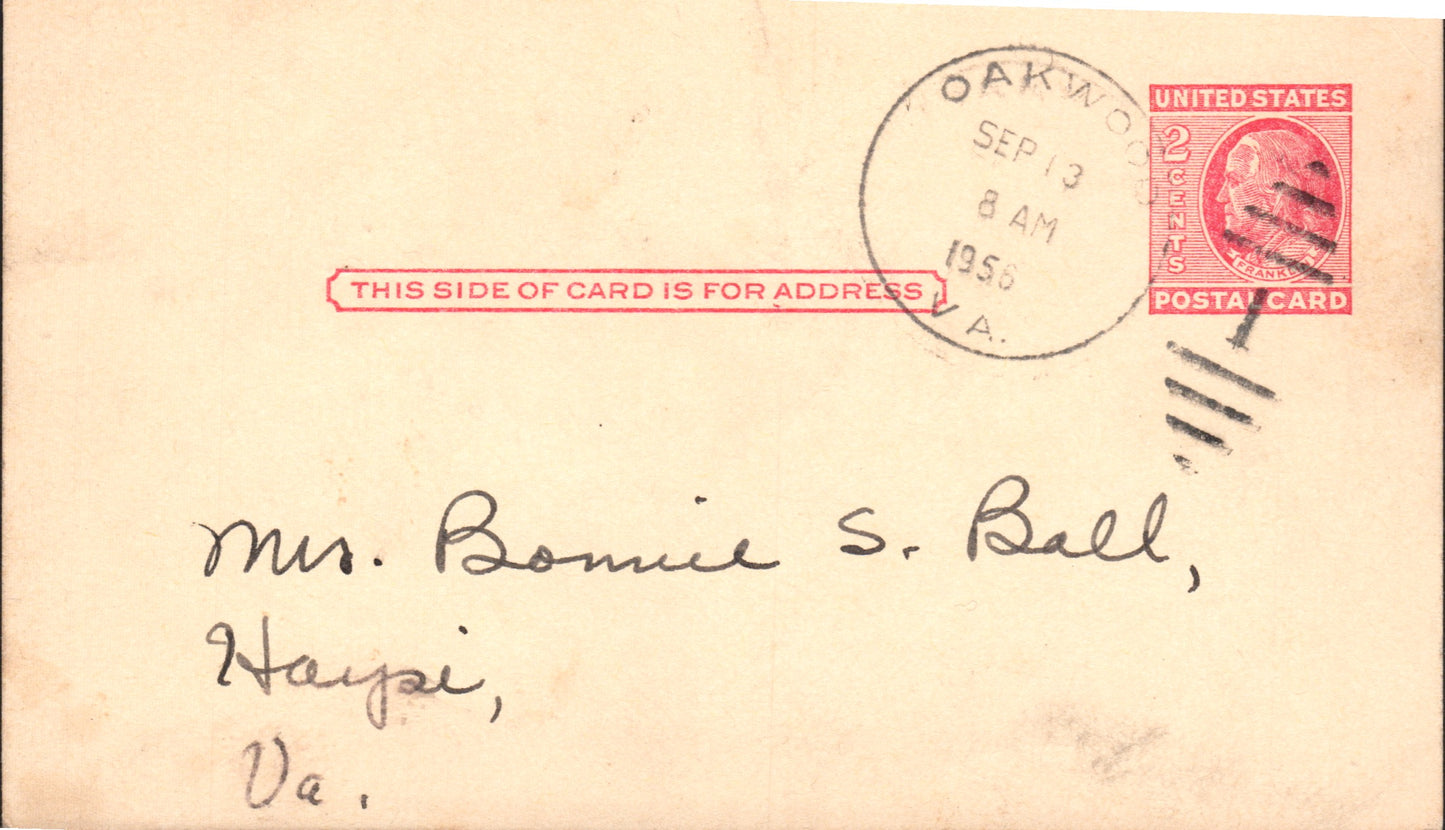 OAKWOOD
SEP 13
8 AM
1956
VA.
UNITED STATES
2 CENTS
FRANKLIN
POSTAL CARD
THIS SIDE OF CARD IS FOR ADDRESS
Mrs. Bonnie S. Ball,
Haysi,
Va.